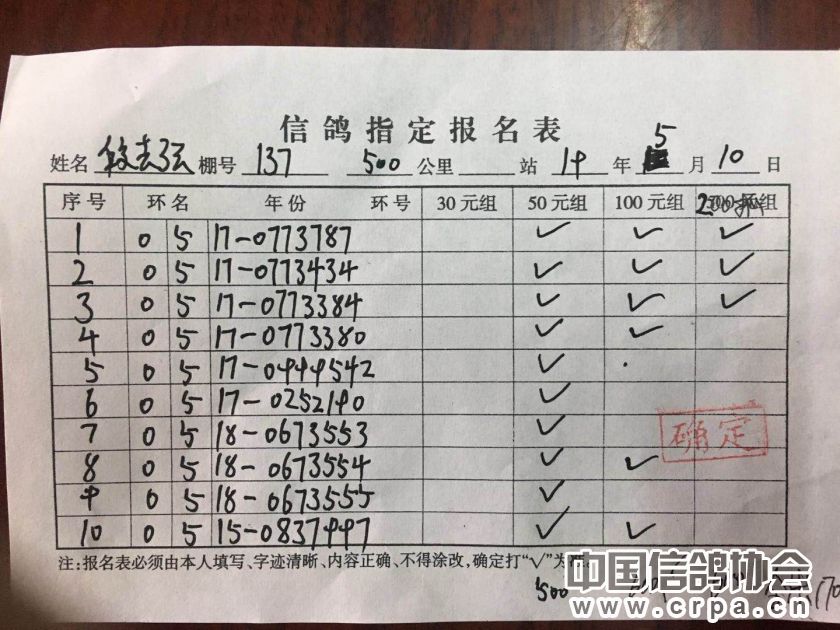 信鸽指定报名表
姓名 棚号 137 500 公里 站 19 年 5 月 10 日
序号 环名 年份 环号 30元组 50元组 100元组 200 组
1 0 5 17-0773787 ✓ ✓ ✓
2 0 5 17-0773434 ✓ ✓ ✓
3 0 5 17-0773384 ✓ ✓ ✓
4 0 5 17-0773380 ✓ ✓
5 0 5 17-0999542 ✓
6 0 5 17-0252190 ✓
7 0 5 18-0673553 ✓
8 0 5 18-0673554 ✓ ✓
9 0 5 18-0673555 ✓
10 0 5 15-0837997 ✓ ✓
确定
注:报名表必须由本人填写、字迹清晰、内容正确、不得涂改,确定打“√”为准。
500
中国信鸽协会
www.crpa.cn